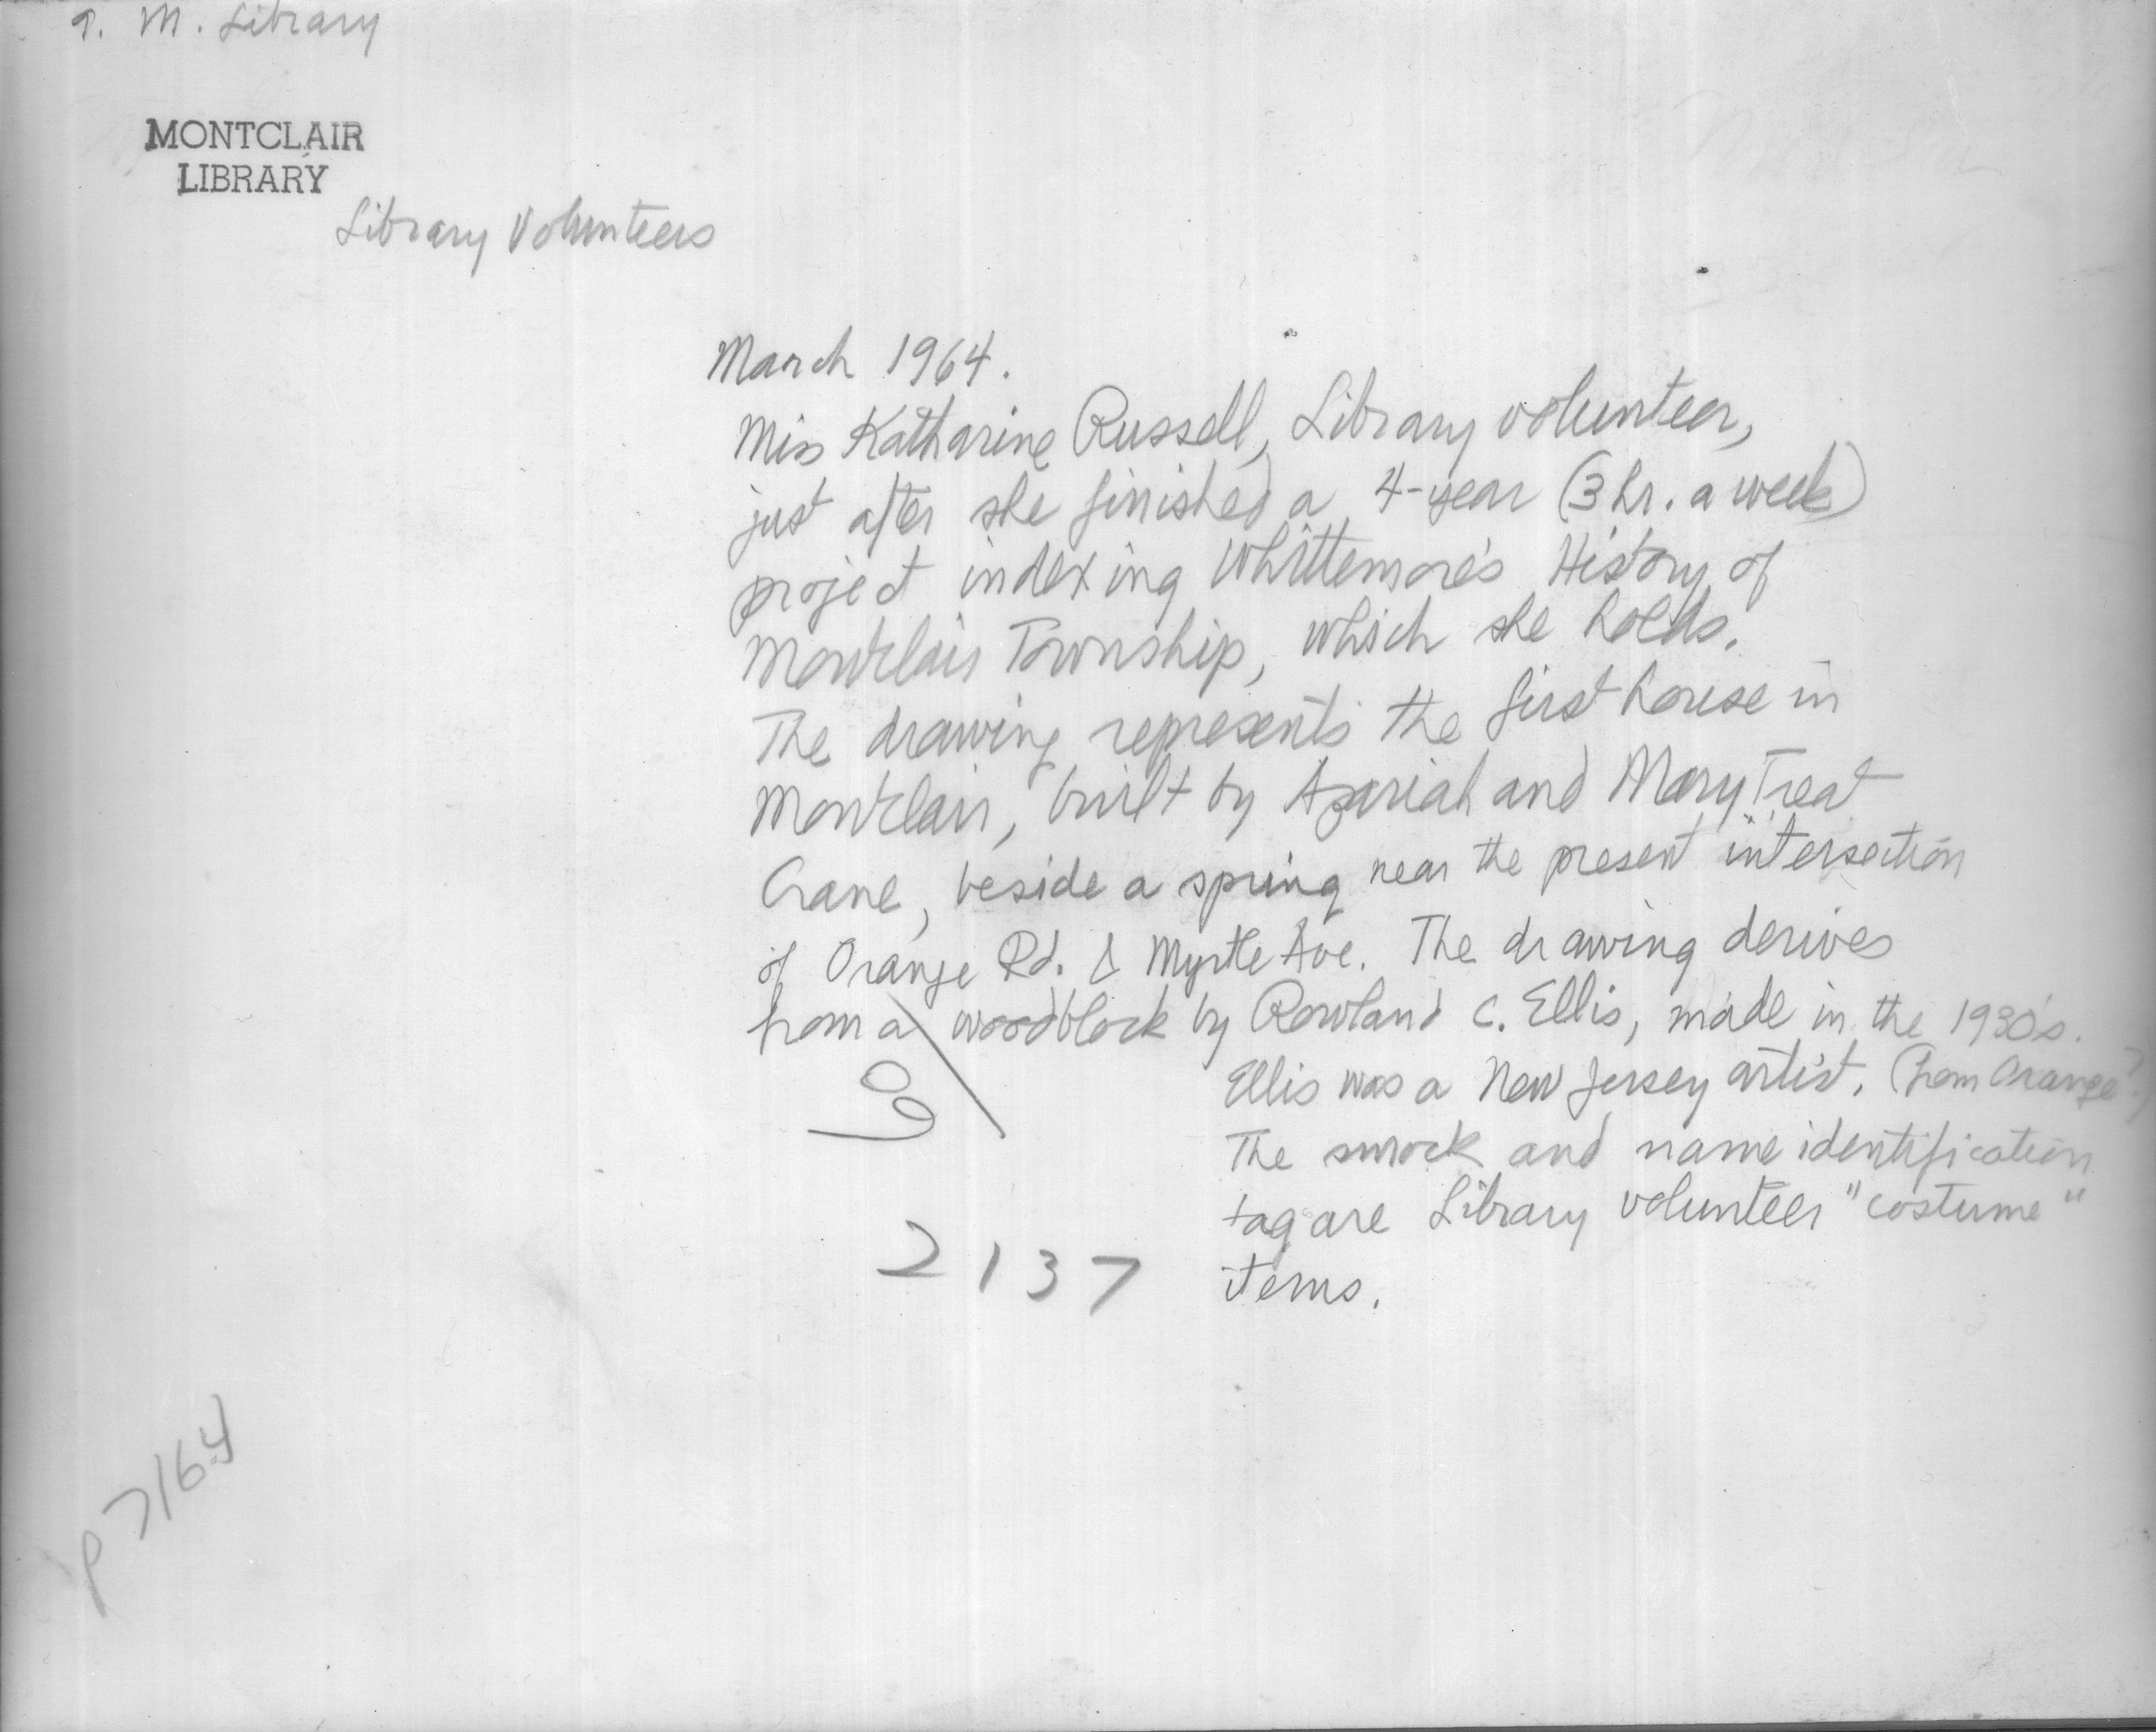 9. M. Library
MONTCLAIR
LIBRARY
Library Volunteers
March 1964.
Miss Katharine Russell, Library volunteer,
just after she finished a 4-year (3 hr. a week)
project indexing Whittemore's History of
Montclair Township, which she holds.
The drawing represents the first house in
Montclair, built by Azariah and Mary Treat
Crane, beside a spring near the present intersection
of Orange Rd. & Myrtle Ave. The drawing derives
from a woodblock by Rowland C. Ellis, made in the 1930's.
Ellis was a New Jersey artist. (from Orange?)
The smock and name identification
tag are Library volunteer "costume"
items.
2137
P 7164